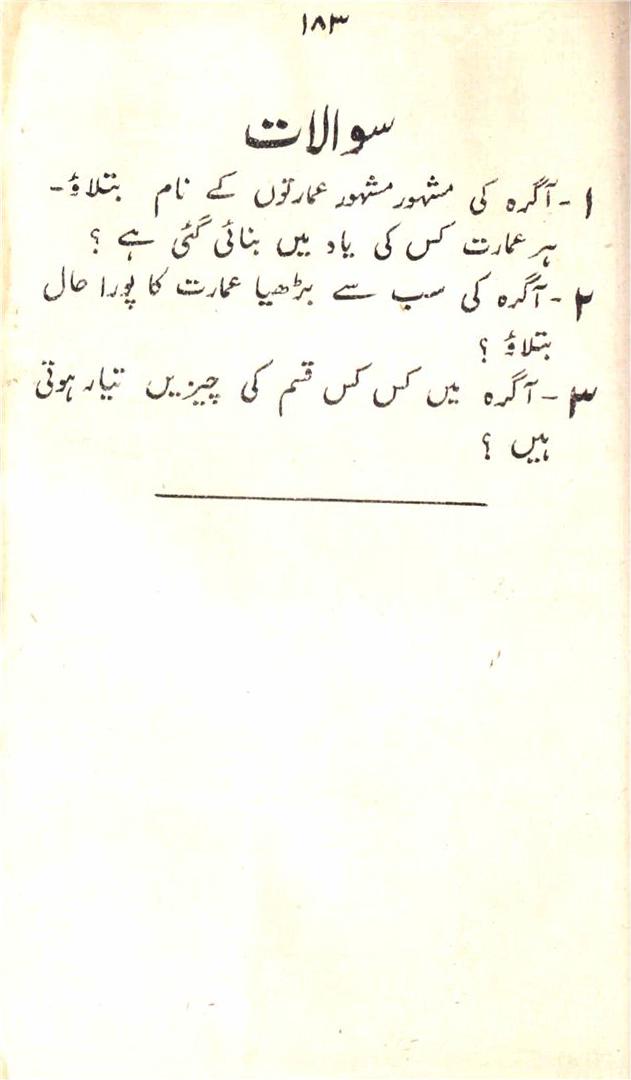 ۱۸۳
سوالات
۱ - آگرہ کی مشہور مشہور عمارتوں کے نام بتلاؤ -
ہر عمارت کس کی یاد میں بنائی گئی ہے ؟
۲ - آگرہ کی سب سے بڑھیا عمارت کا پورا حال
بتلاؤ ؟
۳ - آگرہ میں کس کس قسم کی چیزیں تیار ہوتی
ہیں ؟